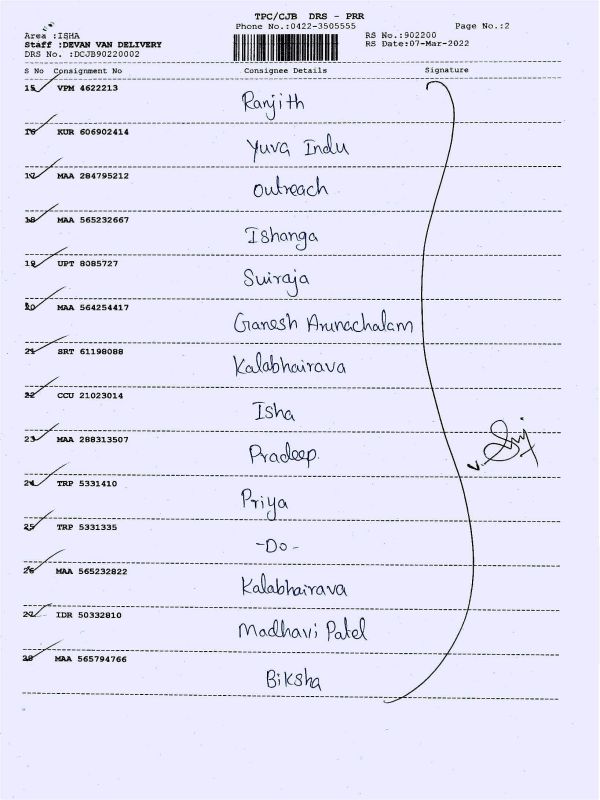 TPC/CJB DRS - PRR
Phone No.:0422-3505555 Page No.:2
Area :ISHA RS No.:902200
Staff :DEVAN VAN DELIVERY RS Date:07-Mar-2022
DRS No. :DCJB90220002
S No Consignment No Consignee Details Signature
15 VPM 4622213
Ranjith
16 KUR 606902414
Yuva Indu
17 MAA 284795212
Outreach
18 MAA 565232667
Ishanga
19 UPT 8085727
Suiraja
20 MAA 564254417
Ganesh Arunachalam
21 SRT 61198088
Kalabhairava
22 CCU 21023014
Isha
23 MAA 288313507
Pradeep
24 TRP 5331410
Priya
25 TRP 5331335
-Do-
26 MAA 565232822
Kalabhairava
27 IDR 50332810
Madhavi Patel
28 MAA 565794766
Biksha